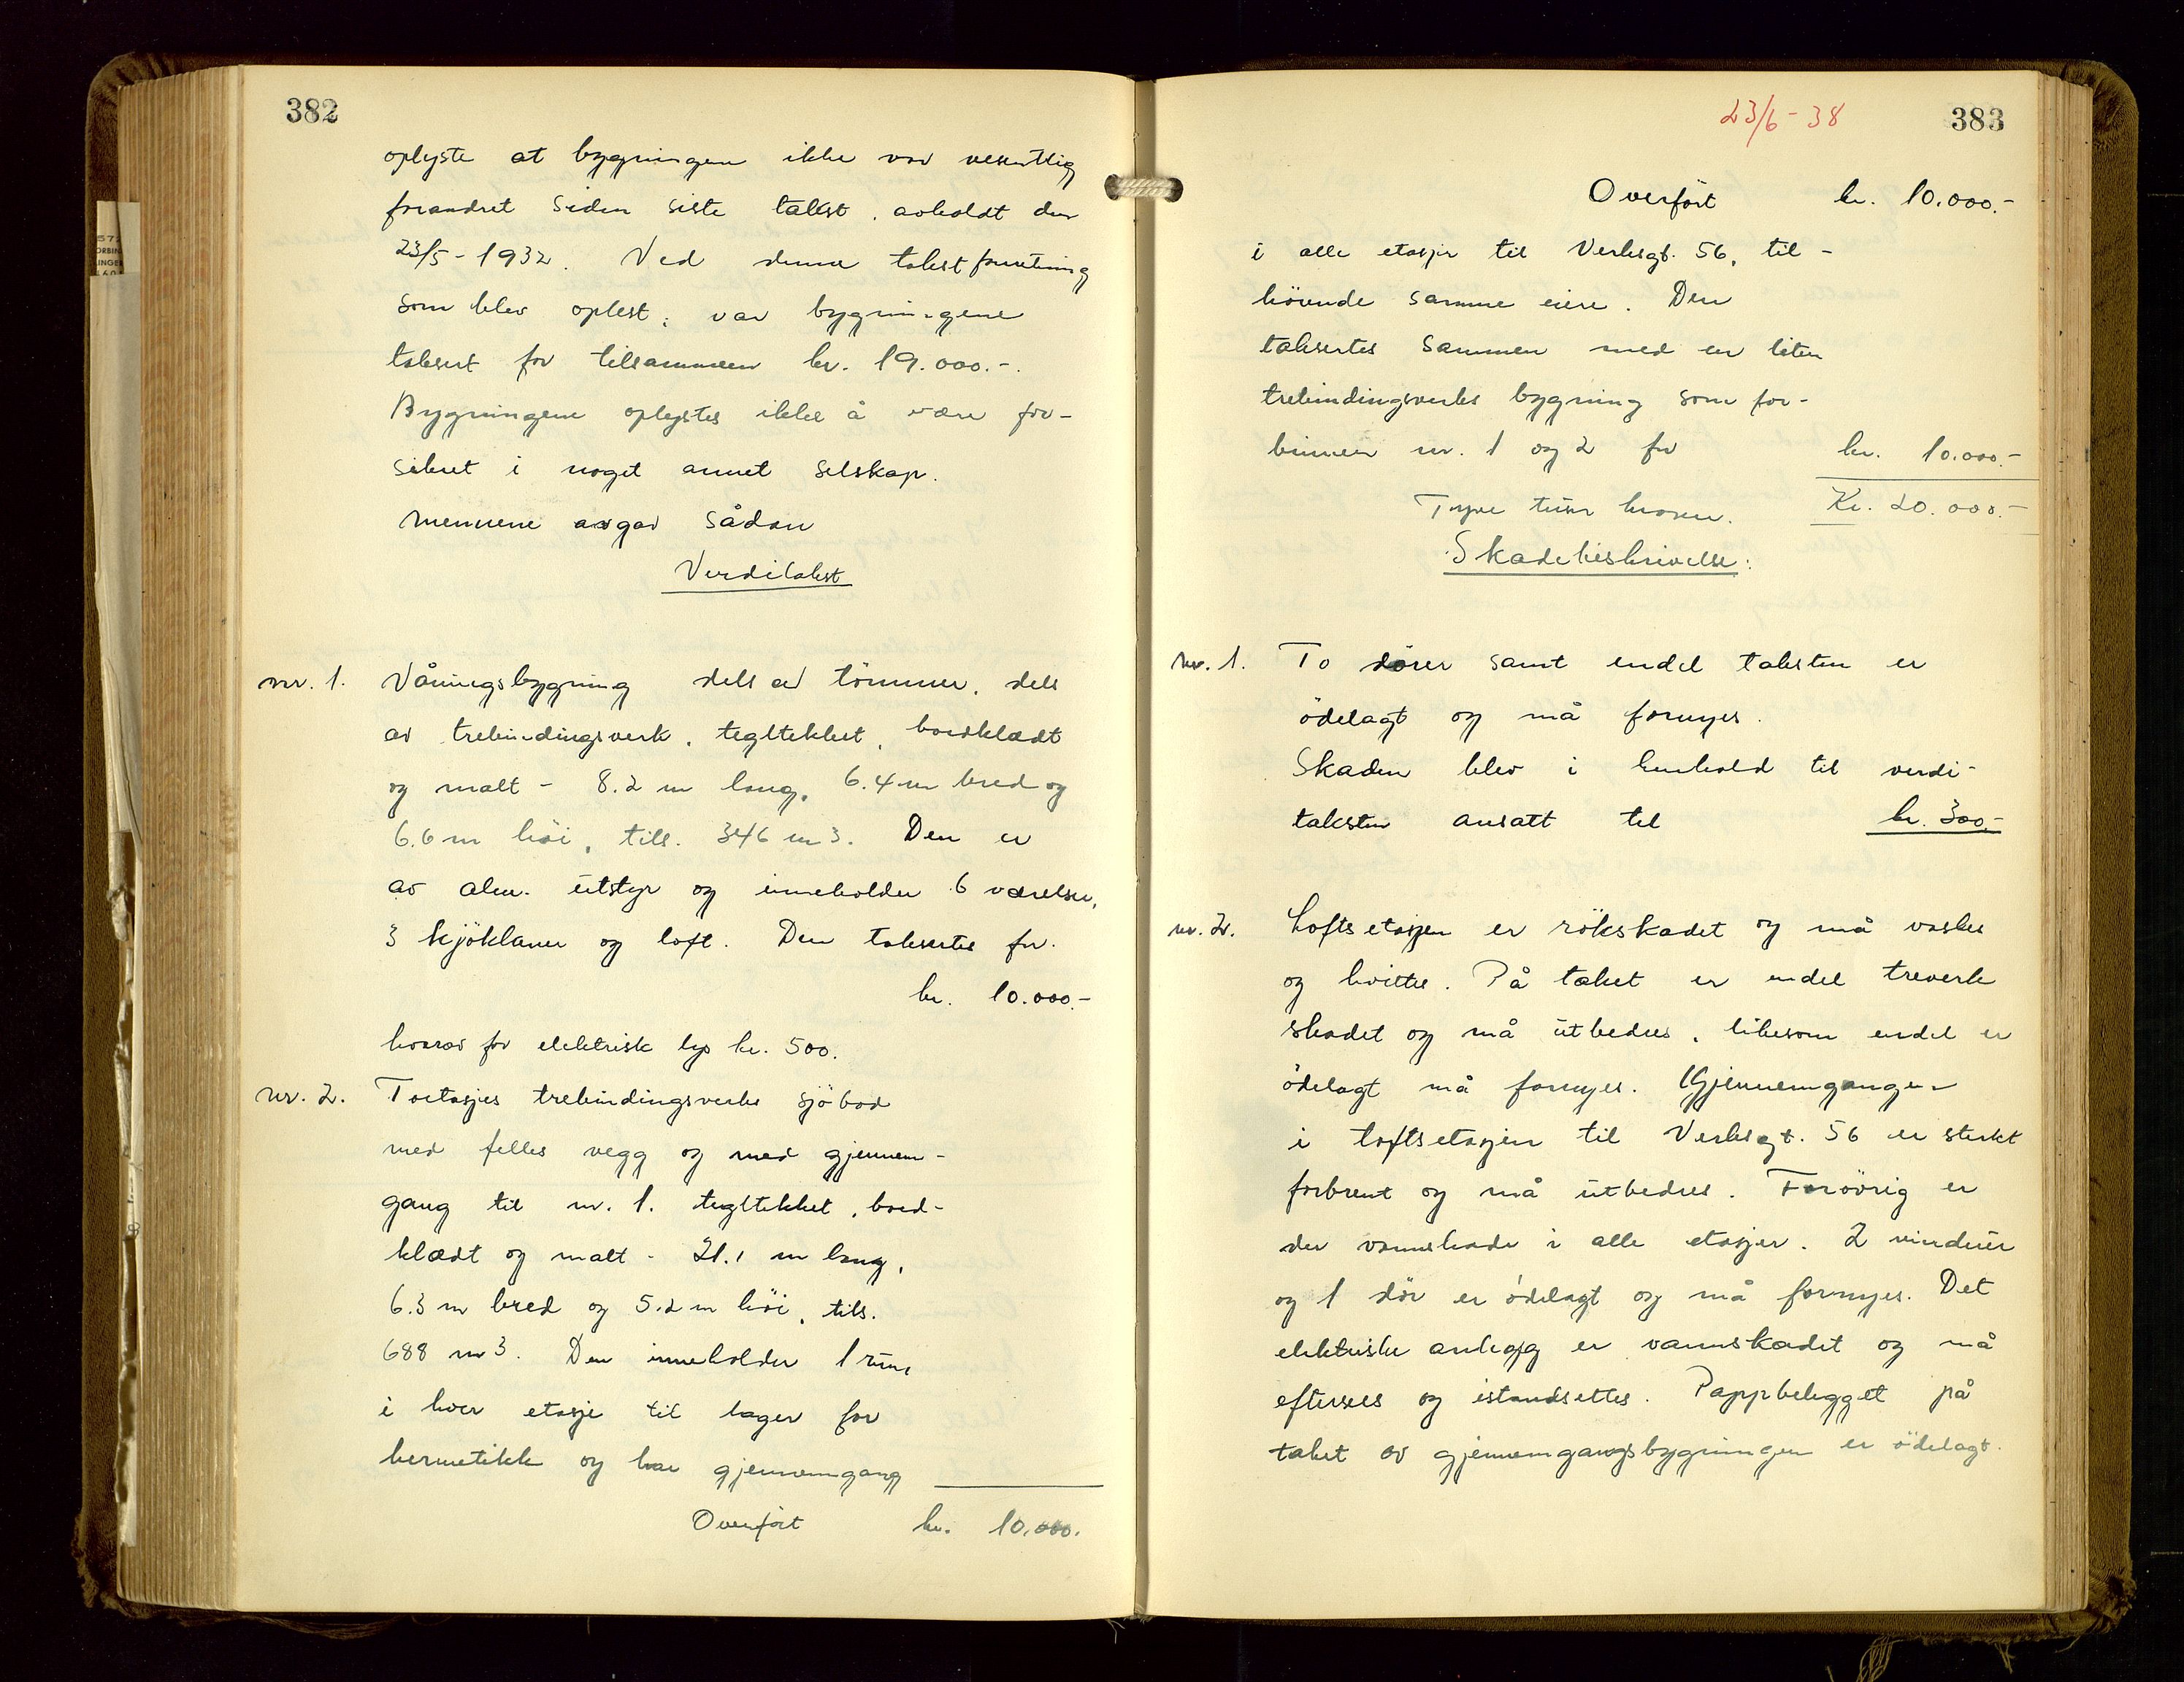 382
oplyste at bygningene ikke var vesentlig
forandret siden siste takst, avholdt den
23/5-1932. Ved denne takstforretning
som blev oplest, var bygningene
taksert for tilsammen kr. 19.000.-.
Bygningene oplystes ikke å være for-
sikret i noget annet selskap.
Mennene avgav sådan
Verditakst
nr. 1. Våningsbygning dels av tömmer, dels
av trebindingsverk, tegltekket, bordklædt
og malt - 8.2 m lang, 6.4 m bred og
6.6 m höi, tils. 346 m3. Den er
av alm. utstyr og inneholder 6 værelser,
3 kjökkener og loft. Den taksertes for
kr. 10.000.-
herav for elektrisk lys kr. 500.
nr. 2. Toetasjes trebindingsverks sjöbod
med felles vegg og med gjennem-
gang til nr. 1. tegltekket, bord-
klædt og malt - 21.1 m lang,
6.3 m bred og 5.2 m höi, tils.
688 m3. Den inneholder 1 rum
i hver etasje til lager for
hermetikk og har gjennemgang
Overfört kr. 10.000.
23/6-38
383
Overfört kr. 10.000.-
i alle etasjer til Verksgt. 56, til-
hörende samme eiere. Den
taksertes sammen med en liten
trebindingsverks bygning som for-
binner nr. 1 og 2 for kr. 10.000.-
Tyve tusen kroner. Kr. 20.000.-
Skadebeskrivelse:
nr. 1. To dörer samt endel taksten er
ödelagt og må fornyes.
Skaden blev i henhold til verdi-
taksten ansatt til kr. 300.-
nr. 2. Loftsetasjen er rökskadet og må vaskes
og hvittes. På taket er endel treverk
skadet og må utbedres, likesom endel er
ödelagt må fornyes. Gjennemgangen
i loftsetasjen til Verksgt. 56 er sterkt
forbrent og må utbedres. Forövrig er
der vannskade i alle etasjer. 2 vinduer
og 1 dör er ödelagt og må fornyes. Det
elektriske anlegg er vannskadet og må
efterses og istandsettes. Pappbelegget på
taket av gjennemgangsbygningen er ödelagt.